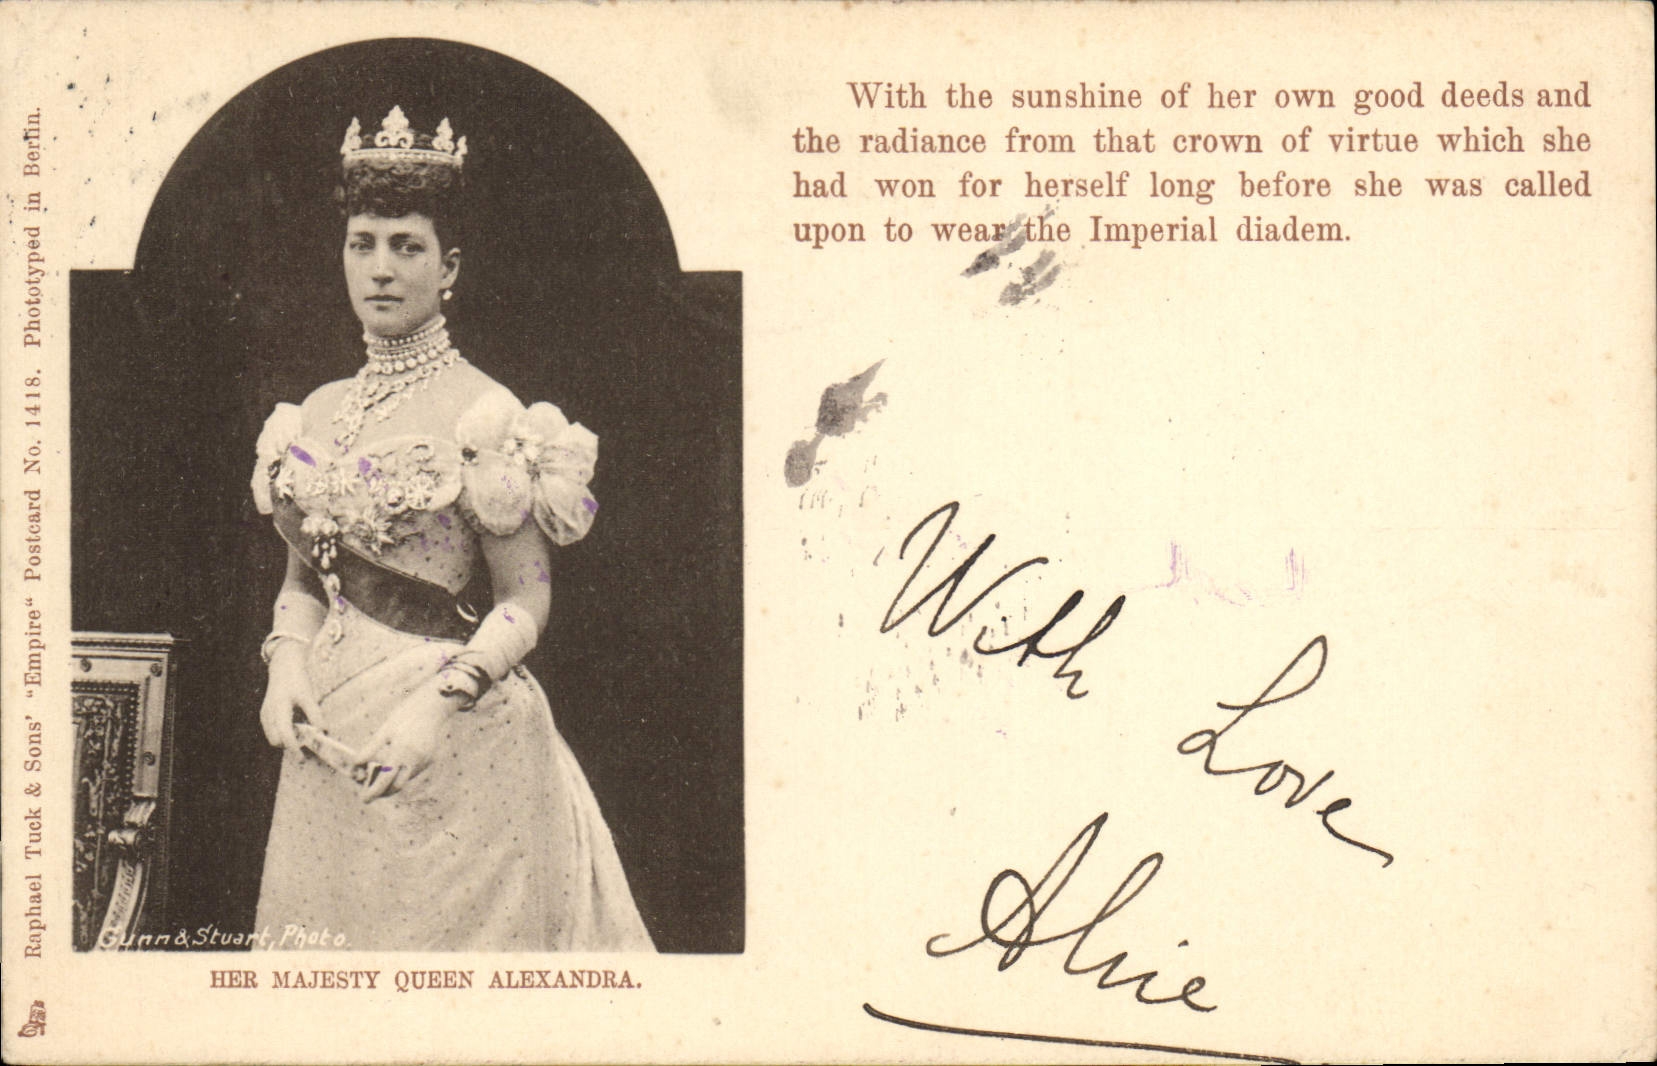 Raphael Tuck & Sons' "Empire" Postcard No. 1418. Phototyped in Berlin.
Gunn & Stuart, Photo.
HER MAJESTY QUEEN ALEXANDRA.
With the sunshine of her own good deeds and
the radiance from that crown of virtue which she
had won for herself long before she was called
upon to wear the Imperial diadem.
With Love
Alice